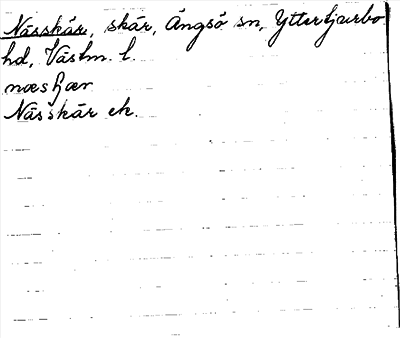 Nässkär, skär, Ängsö sn, Ytterbjurbo
hd, Västm. l.
Nässkär ek.